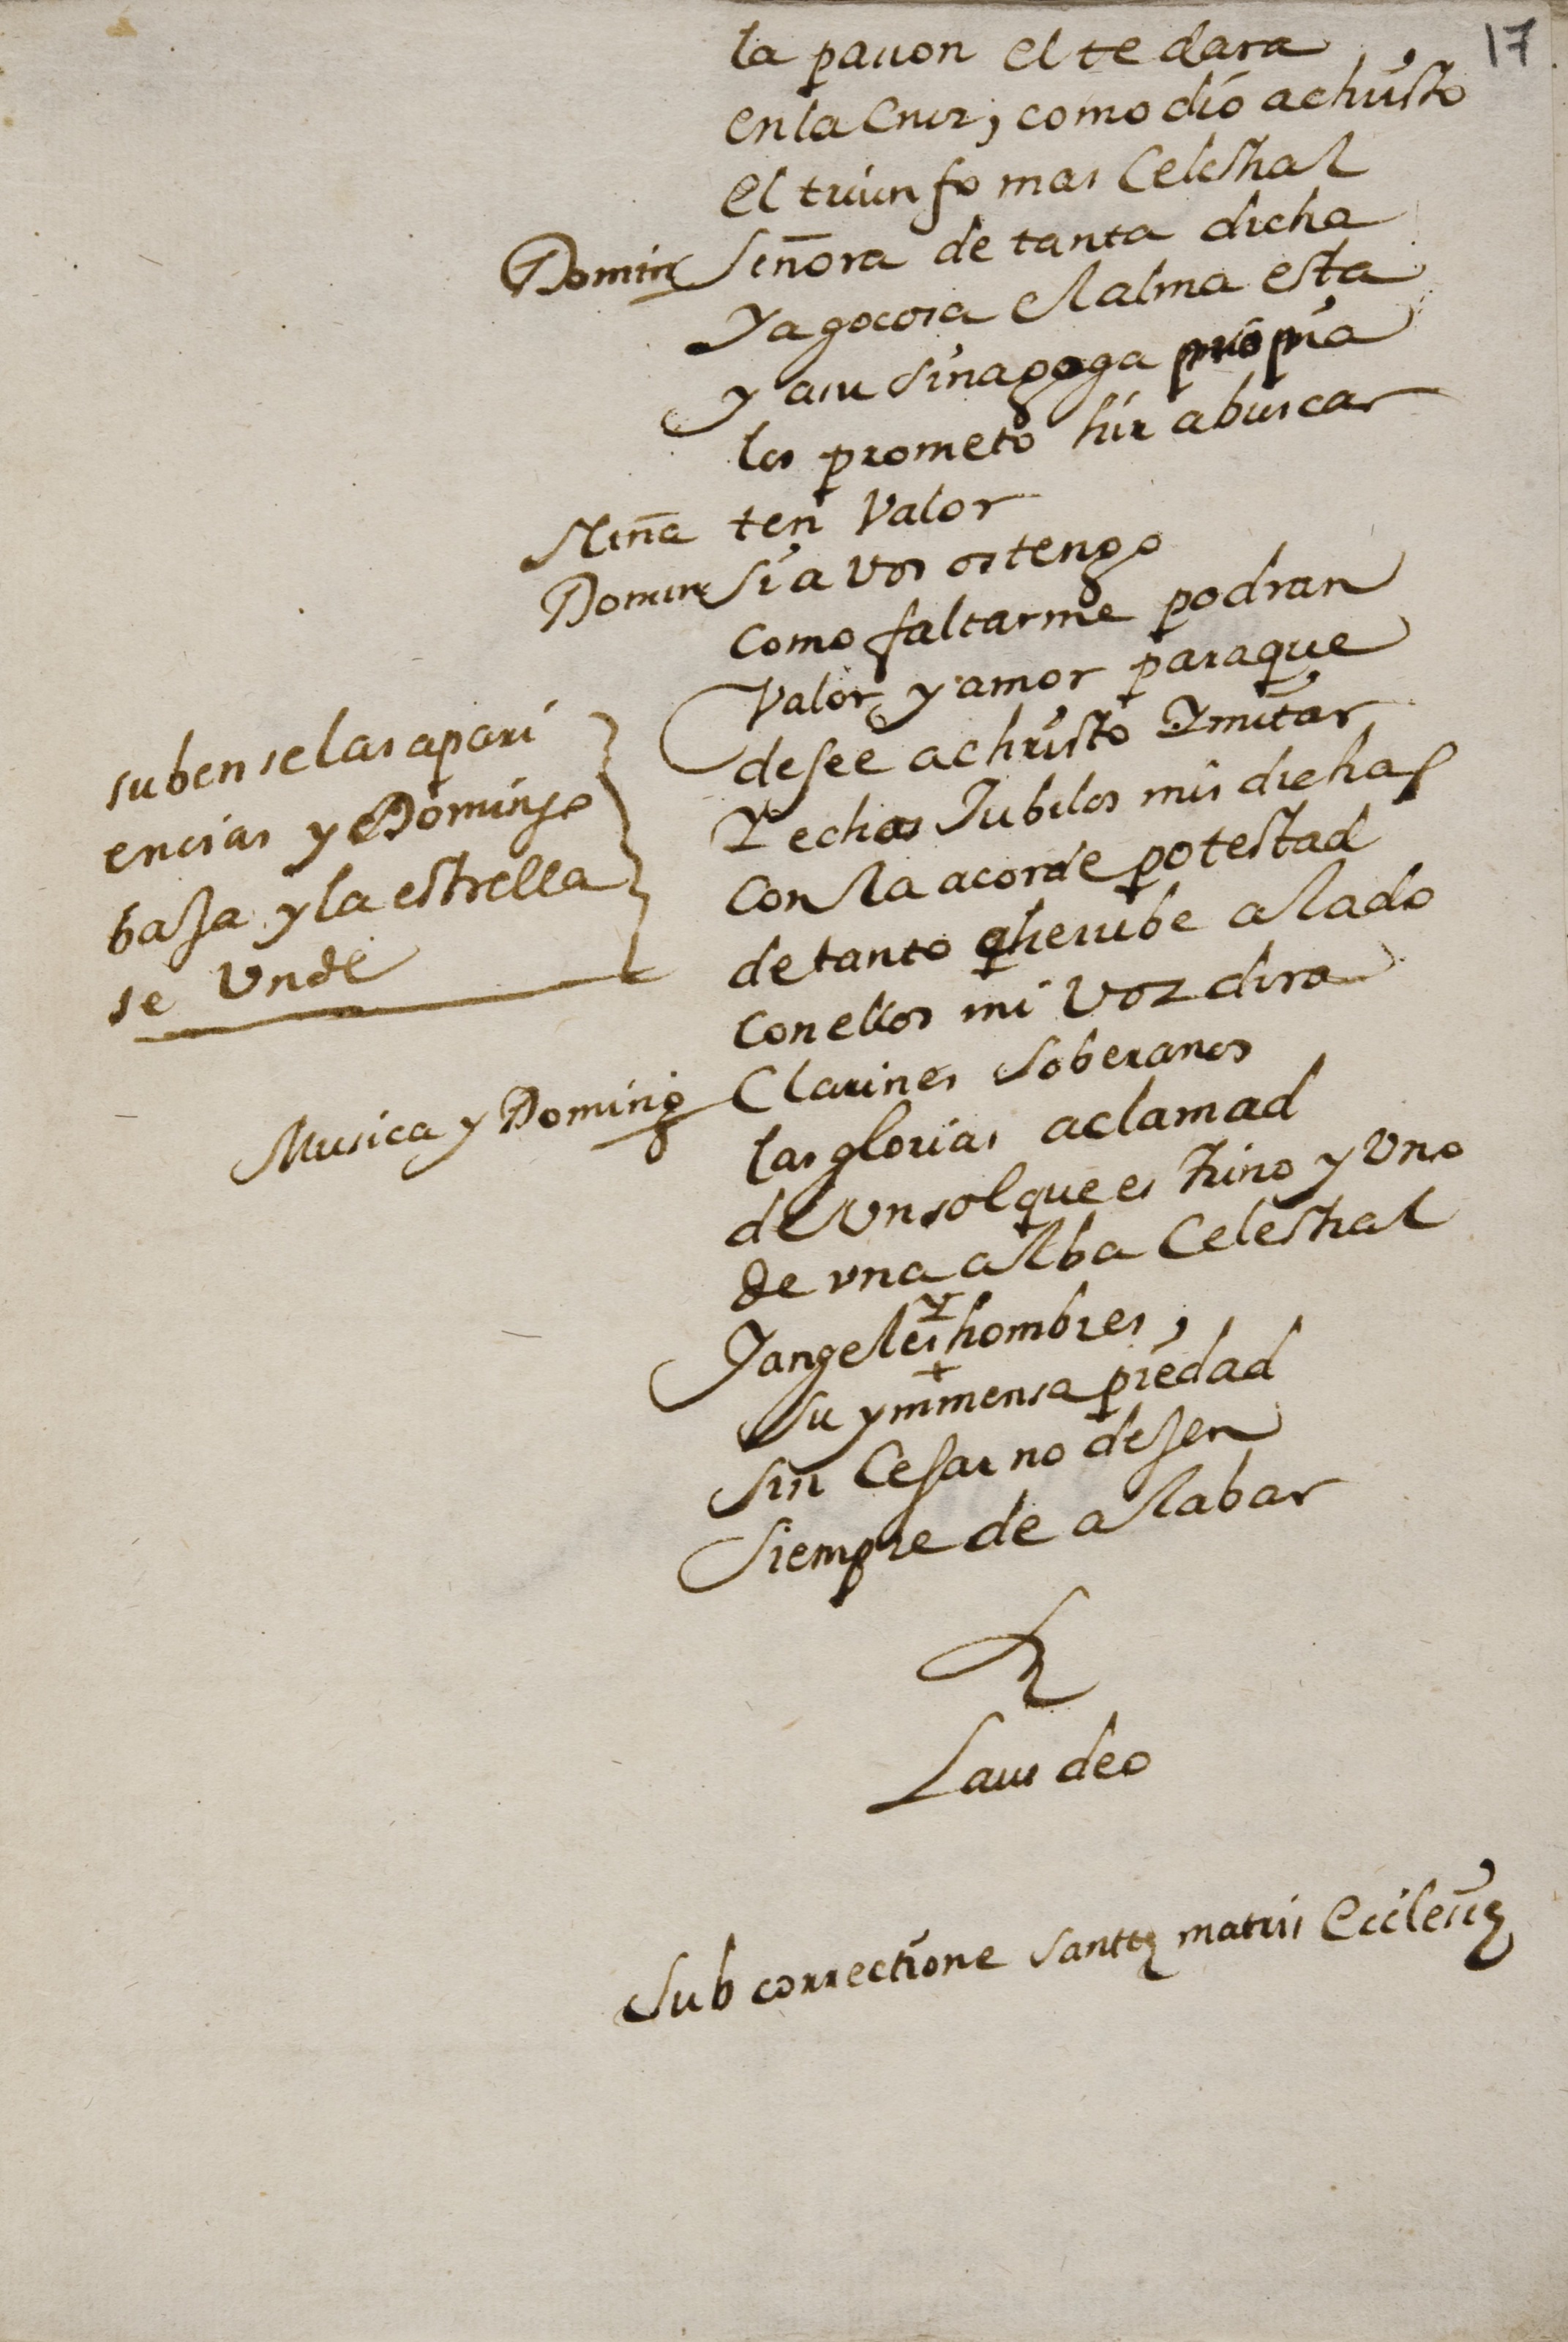 17
la passion el te dara
en la Cruz, como dió a christo
el triunfo mas Celestial
Doming Señora de tanta dicha
Ya gocosa el alma esta
y a su Sinagoga propia
los prometo hir a buscar
Niña ten Valor
Doming Si a vos os tengo
como faltarme podran
Valor, y amor para que
desee a christo Ymitar
Y echos Jubilos mis dichas
con la acorde potestad
de tanto qherube alado
con ellos mi Voz dira
suben se las apari
encias y Domingo
baja y la estrella
se Unde
Musica y Doming Clarines Soberanos
las glorias aclamad
de Un sol que es trino y Uno
de una alba Celestial
Y angeles Y hombres,
su ymmensa piedad
Sin Cesar no dejen
Siempre de alabar
Laus deo
Sub correctione santtę matris Ecclesię